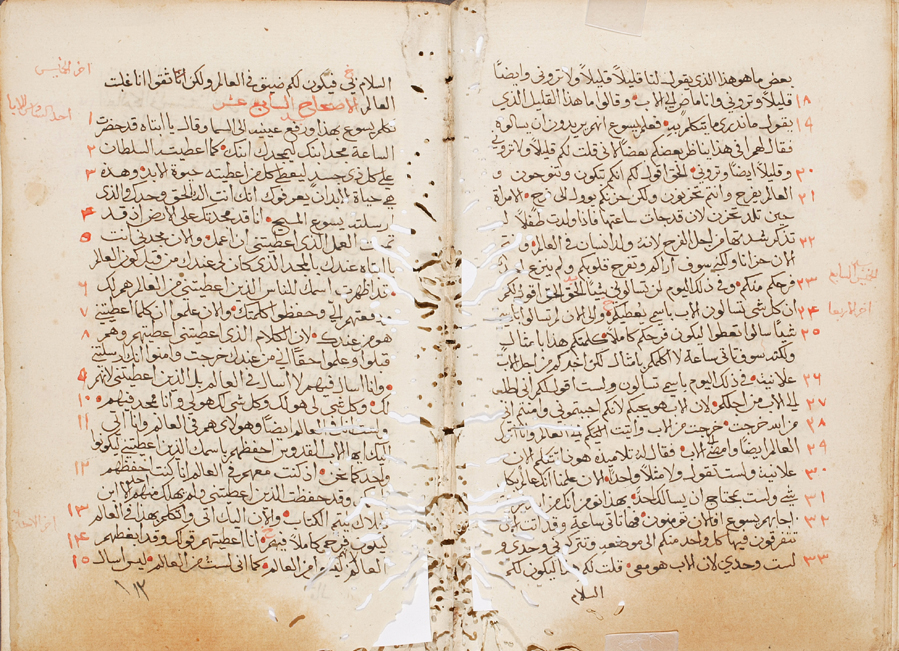 بعض ما هو هذا الذي يقول لنا قليلاً قليلاً ولا تروني وايضاً
١٨ قليلاً وتروني وانا ماضٍ الى الاب وقالوا ما هذا القليل الذي
١٩ يقول ما ندري ما يتكلم به فعلم يسوع انهم يريدون ان يسالوه
فقال لهم افي هذا يناظر بعضكم بعضاً لاني قلت لكم قليلاً ولا تروني
٢٠ وقليلاً ايضاً وتروني الحق اقول لكم انكم تبكون وتنوحون و
٢١ العالم يفرح وانتم تحزنون ولكن حزنكم يوول الى فرح الامراة
حين تلد تحزن لان قد جات ساعتها فاذا ولدت طفلاً لم
٢٢ تذكر شدتها من اجل الفرح لانه ولد انسان في العالم وانتم
الان حزانا ولكني سوف اراكم وتفرح قلوبكم ولم ينزع احد
٢٣ فرحكم منكم وفي ذلك اليوم لن تسالوني شيا الحق الحق اقول لكم
٢٤ ان كل شي تسالون الاب باسمي يعطيكم والى الان لم تسالوا باسمي
٢٥ شيا سالوا تعطوا ليكون فرحكم كاملاً كلمتكم هذا بامثال
ولكن سوف تاتي ساعة لا اكلمكم بامثال لكن اخبركم من اجل الاب
٢٦ علانية في ذلك اليوم باسمي تسالون ولست اقول لكم اني اطلب
٢٧ الى الاب من اجلكم لان الاب هو يحبكم لانكم احببتموني وامنتم اني
٢٨ من الله خرجت خرجت من الاب واتيت الى العالم وانا اترك
٢٩ العالم ايضاً وامضي الى الاب فقال له تلاميذه هوذا تتكلم الان
٣٠ علانية ولست تقول ولا مثلاً واحداً الان علمنا انك عالم بكل
٣١ شي ولست محتاج ان يسالك احد بهذا نومن انك من الله خرجت
٣٢ اجابهم يسوع افالان تومنون فها تاتي ساعة وقد اتت الان
تتفرقون فيها كل واحد منكم الى موضعه وتتركوني وحدي و
٣٣ لست وحدي لان الاب هو معي قلت لكم هذا ليكون لكم
السلام
الخميس السابع
اخر الاربعا
السلام بي فيكون لكم ضيق في العالم ولكن ثقوا انا غلبت
العالم الاصحاح السابع عشر
١ تكلم يسوع بهذا ورفع عينيه الى السما وقال يا ابتاه قد حضرت
٢ الساعة مجد ابنك ليمجدك ابنك كما اعطيته السلطان
٣ على كل ذي جسد ليعطي كل من اعطيته حيوة الابد وهذه
هي حياة الابد ان يعرفوك انك انت الاله الحق وحدك والذي
٤ ارسلته يسوع المسيح انا قد مجدتك على الارض ان قد
٥ تممت العمل الذي اعطيتني ان اعمله والان مجدني انت
يا ابتاه عندك بالمجد الذي كان لي عندك من قبل كون العالم
٦ قد اظهرت اسمك للناس الذين اعطيتني من العالم هم لك
٧ ودفعتهم الي وحفظوا كلمتك والان علموا ان كلما اعطيتني
٨ هو من عندك لان الكلام الذي اعطيتني اعطيتهم وهم
قبلوا وعلموا حقاً اني من عندك خرجت وامنوا انك ارسلتني
٩ وانا اسال فيهم لا اسال في العالم بل الذين اعطيتني لانهم
١٠ لك وكل شي لي هو لك وكل شي لك هو لي وانا ممجد فيهم
١١ ولست انا في العالم ايضاً وهولاي هم في العالم وانا اتي
اليك ايها الاب القدوس احفظهم باسمك الذين اعطيتني ليكونوا
١٢ واحد كما نحن اذ كنت معهم في العالم انا كنت احفظهم
وقد حفظت الذين اعطيتني ولم يهلك منهم الا ابن
١٣ الهلاك ليتم الكتاب والان اليك اتي واتكلم بهذا في العالم
١٤ ليكون فرحي كاملاً فيهم انا اعطيتهم قولك وقد ابغضهم
١٥ العالم لانهم ليسوا من العالم كما اني لست من العالم ليس اسال
اخر الخميس
١١٣